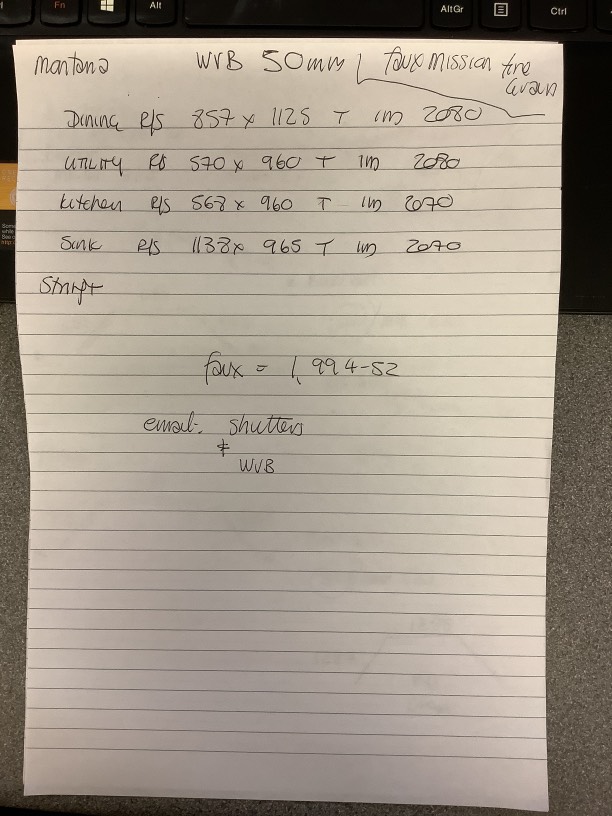 Fn Alt AltGr Ctrl
montana WVB 50mm faux mission fine
Grain
Dining R/S 857 x 1125 T IM 2080
UTILITY RS 570 x 960 T IM 2080
kitchen R/S 568 x 960 T IM 2070
Sink R/S 1138 x 965 T IM 2070
faux = 1,994-52
email. shutters
+
WVB